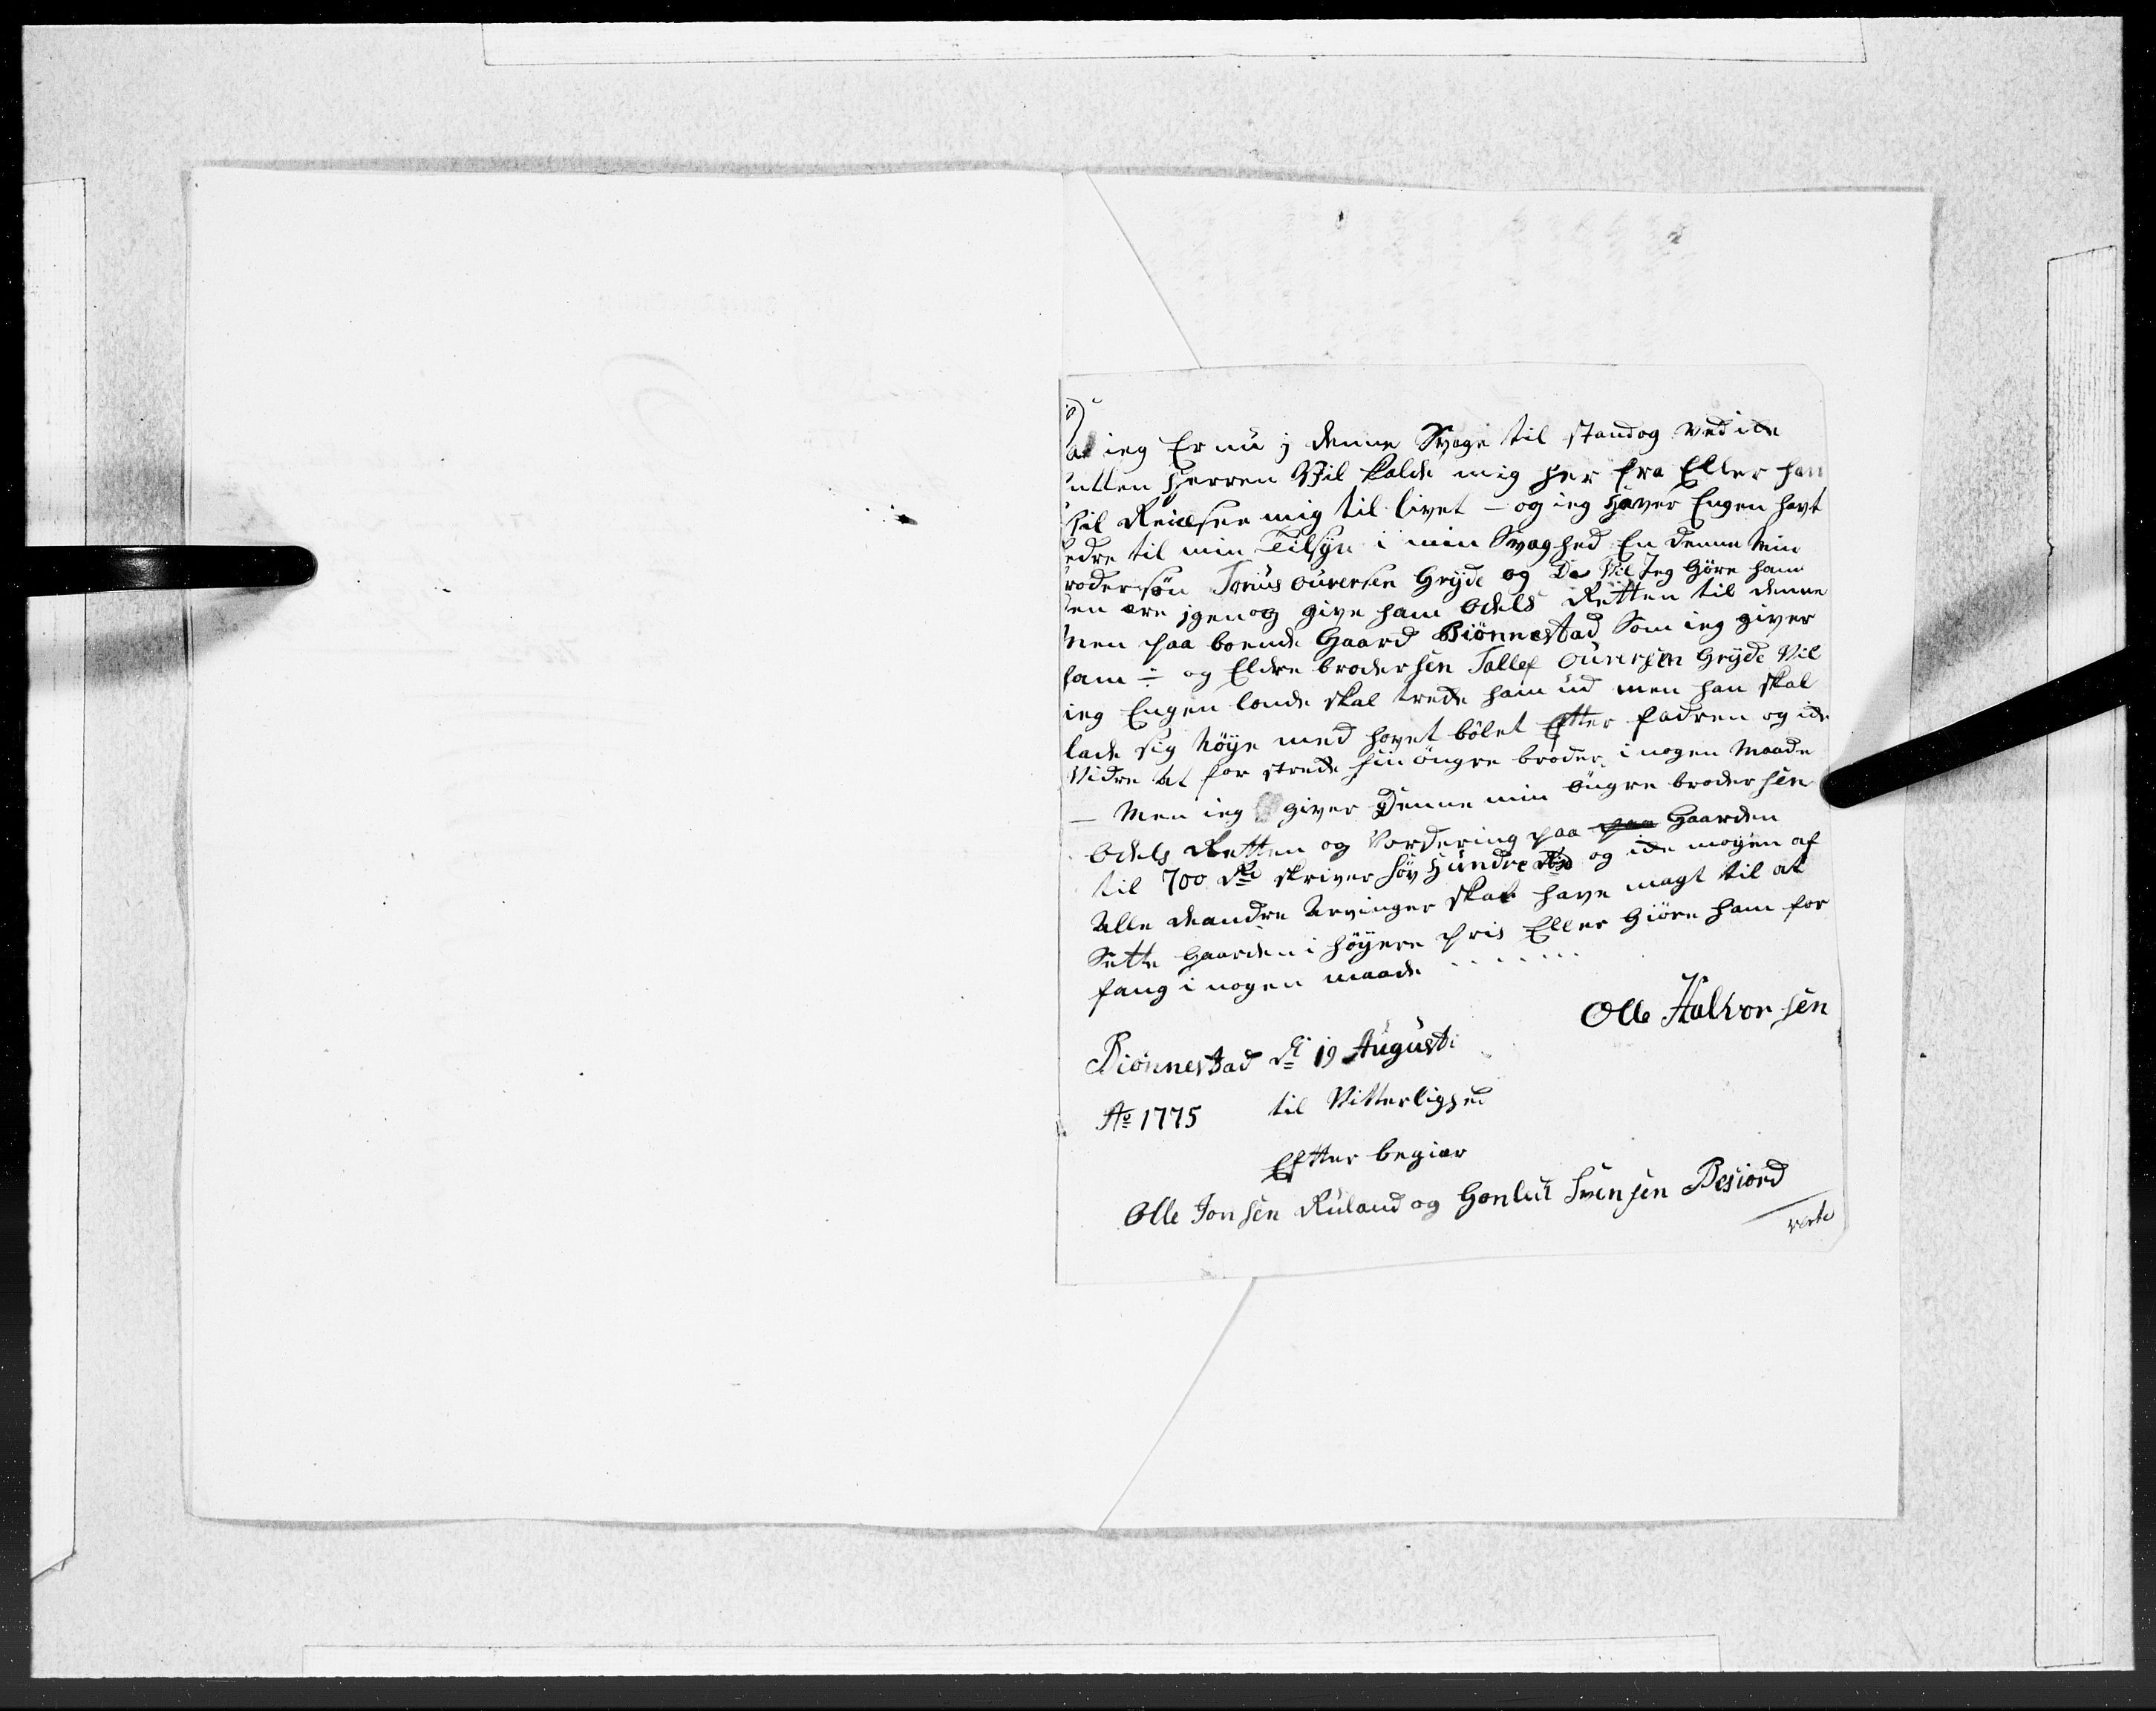 at ieg Er nu i denne Svage til stand og ved ide
utten Herren Vil kalde mig her fra Eller han
vil Reidsee mig til livet - og ieg Haver Engen havt
bedre til min Tilsyn i min Svaghed En denne Min
brodersøn Tonius ouversen Gryde og Da Vil Jeg Gøre ham
en ære igen og give ham Odels Retten til denne
Men paa boende Gaard Biønnestad Som ieg giver
ham ÷ og Eldre brodersen Tallef Ouversen Gryde Vil
ieg Engen londe skal trede ham ud men han skal
lade sig nöye med hovet bölet Efter fadren og ide
Vidre at for strede sin öngre broder i nogen Maade
— Men ieg giver Denne min öngre broder sen
Odels Retten og Vordering paa paa Gaarden
til 700 Rd skriver Söv Hundre Rd og ide nogen af
Alle deandre Arvinger skal have magt til at
Sette Gaarden i höyere pris Eller Giöre ham for
fang i nogen maade . . . . . .
Olle Halvor sen
Biönnestad d 19 Augusti
Ao 1775 til Vitterlighed
Efter begiær
Olle Jonsen Ruland og Gonlut Svensen Besiord
verte